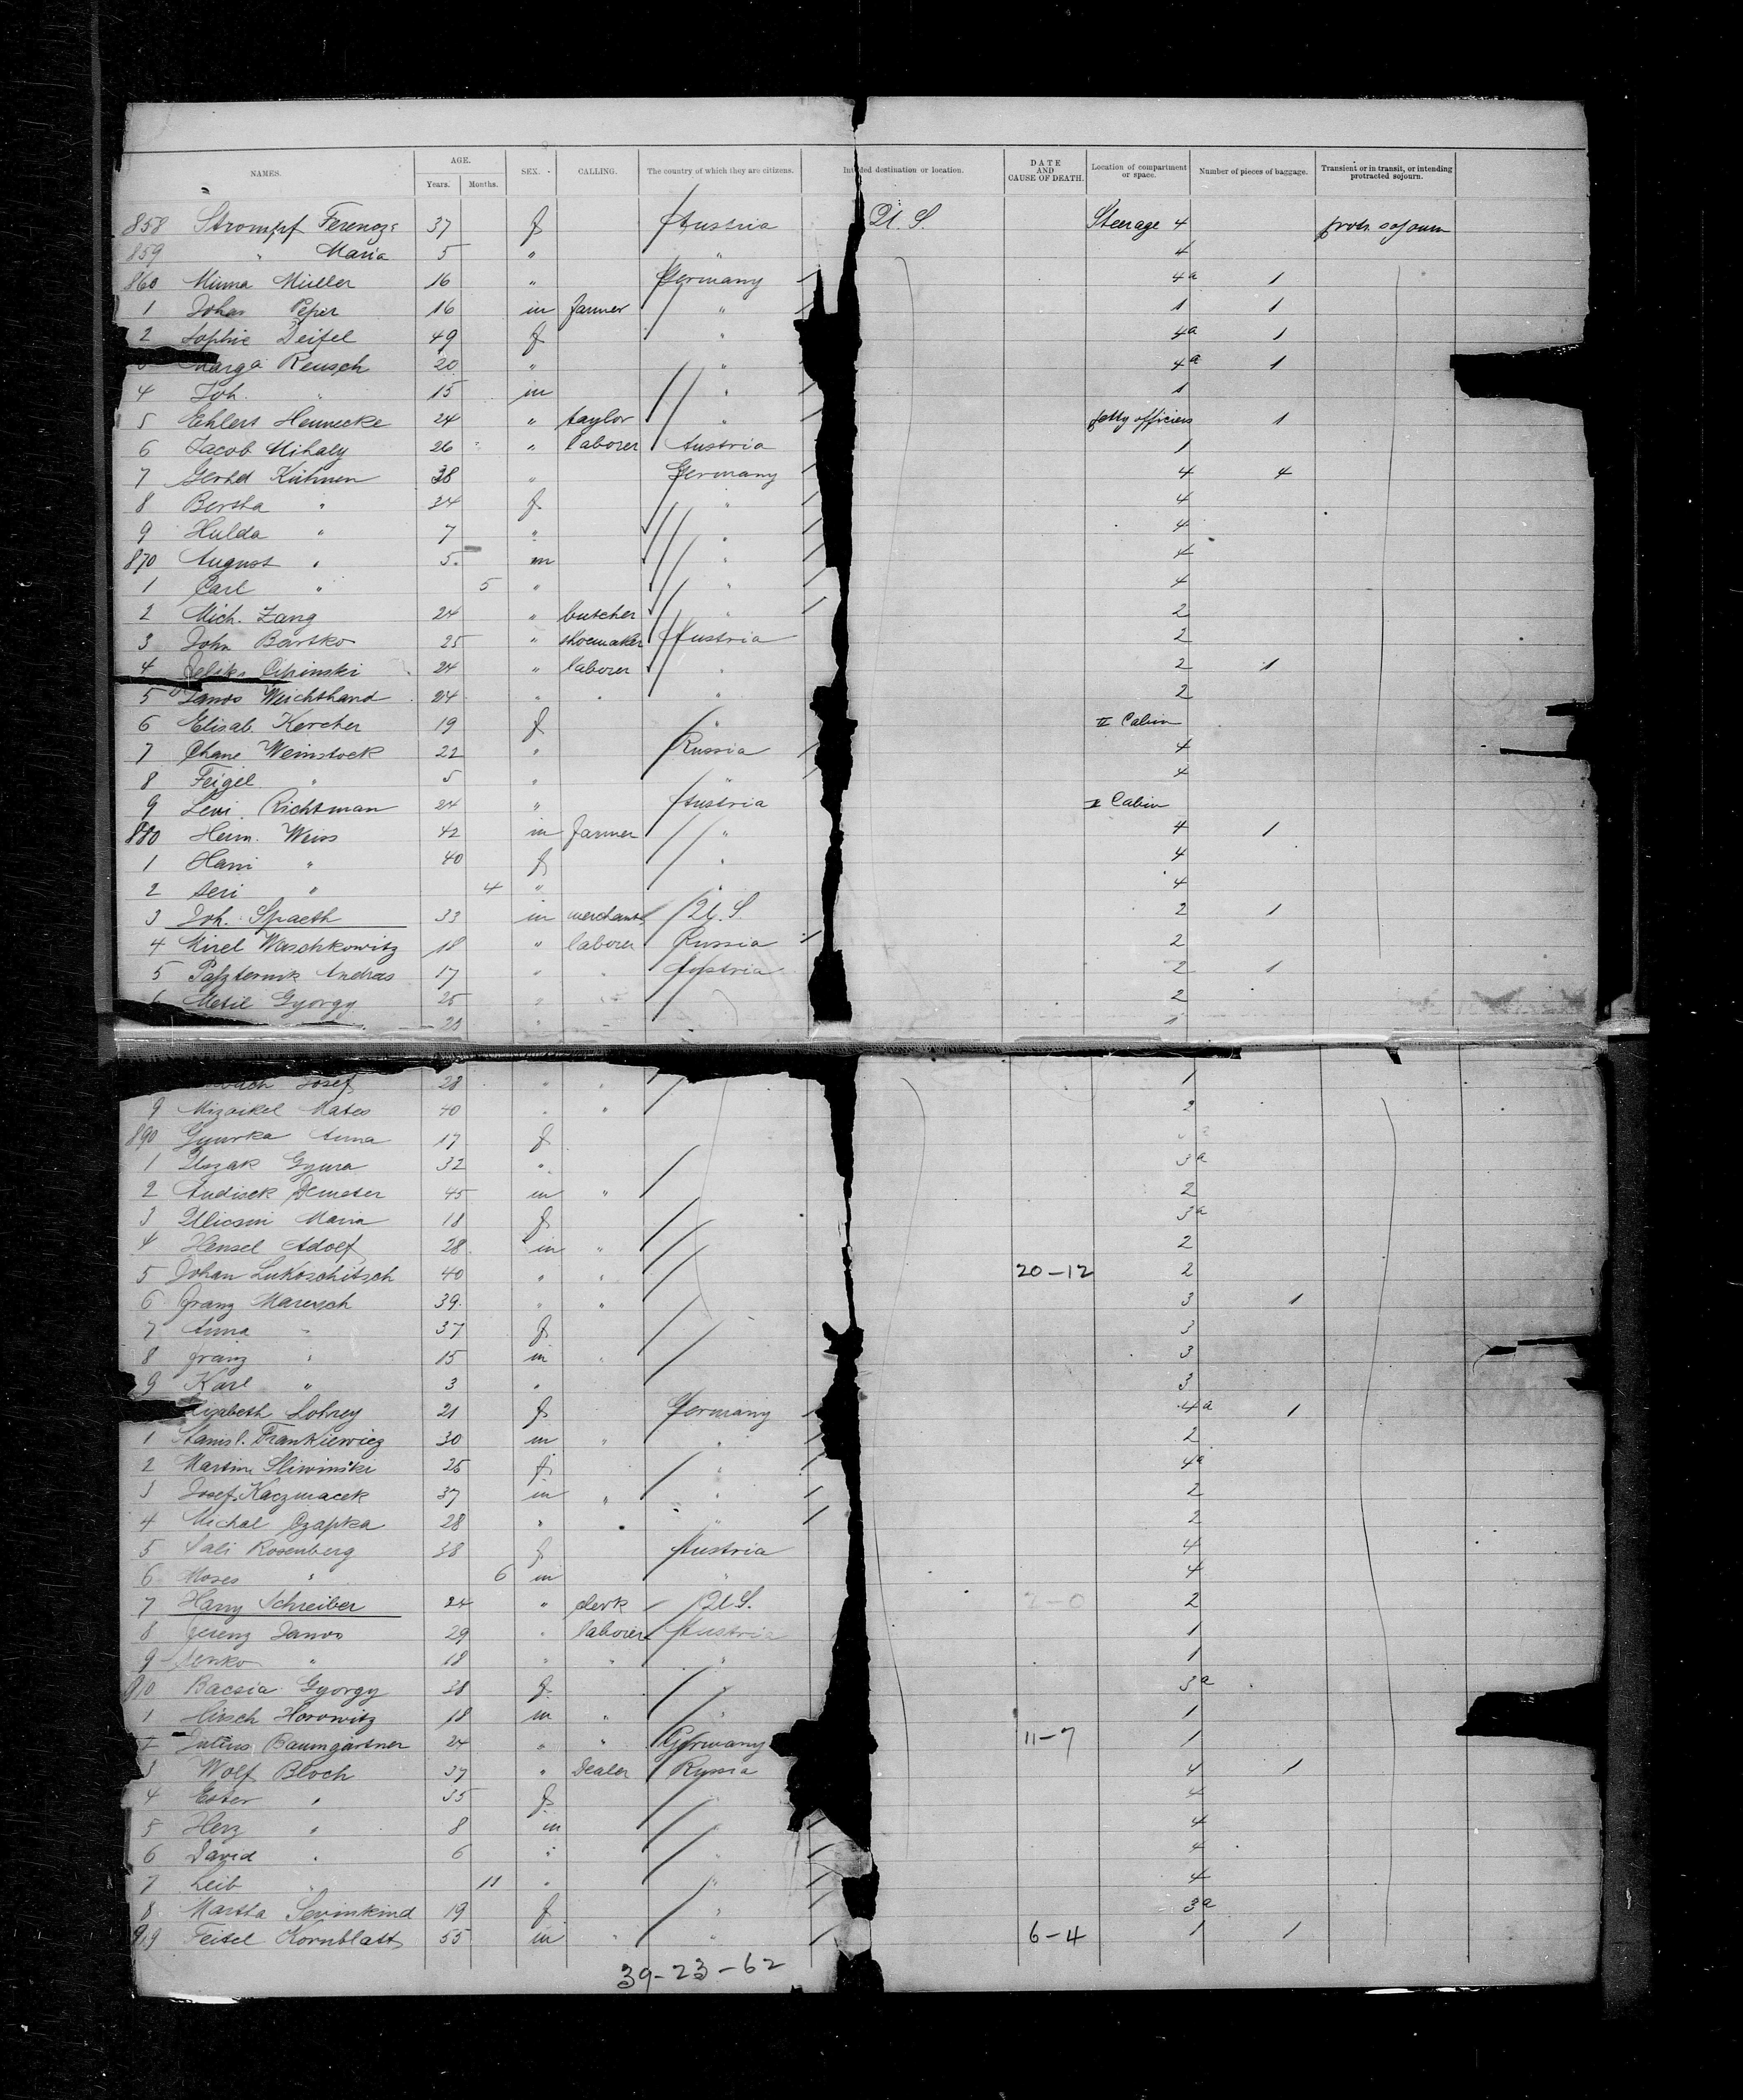 NAMES. AGE. Years. Months. SEX. CALLING. The country of which they are citizens. Intended destination or location. DATE AND CAUSE OF DEATH. Location of compartment or space. Number of pieces of baggage. Transient or in transit, or intending protracted sojourn.
858 Strompf Ferencz 37 f Austria U. S. Steerage 4 protr. sojourn
859 " Maria 5 " " 4
860 Minna Müller 16 " Germany 4a 1
1 Johan Peper 16 m farmer " 1 1
2 Sophie Deifel 49 f " 4a 1
Marga Reusch 20 " " 4a 1
4 Joh. " 15 m " 1
5 Ehlert Hennecke 24 " taylor " petty officiers 1
6 Jacob Mihaly 26 " laborer Austria 1
7 Gerhd Kühnen 38 " Germany 4 4
8 Bertha " 34 f " 4
9 Hulda " 7 " " 4
870 August " 5 m " 4
1 Carl " 5 " " 4
2 Mich. Zang 24 " butcher " 2
3 John Bartko 25 " shoemaker Austria 2
4 Cipinski 24 " laborer " 2 1
5 Janos Weichthand 24 " " " 2
6 Elisab. Kercher 19 f " II Cabin
7 Chane Weinstock 22 " Russia 4
8 Feigel " 5 " " 4
9 Levi Richtman 24 " Austria II Cabin
880 Herm. Weiss 42 m farmer " 4 1
1 Hani " 40 f " 4
2 Seri " 4 " " 4
3 Joh. Spaeth 33 m merchant U. S. 2 1
4 Mirel Waschkowitz 18 " laborer Russia 2
5 Paszternik Andras 17 " " Austria 2 1
6 Metil Gyorgy 25 " " 2
21 " 1
Josef 28 " " 1
9 Mizaikel Mates 40 " " 2
890 Gyurka Anna 17 f
1 Gyura 32 " 3a
2 Andisek Demeter 45 m " 2
3 Ulicsni Maria 18 f 3a
4 Hensel Adolf 28 m " 2
5 Johan Lukoschitsch 40 " " 20-12 2
6 Franz Maresch 39 " " 3 1
7 Anna " 37 f 3
8 Franz " 15 m " 3
9 Karl " 3 " 3
Elisabeth Lohrey 21 f Germany 4a 1
1 Stanisl. Frankiewicz 30 m " " 2
2 Martin Sliwinski 25 f " 4a
3 Josef Kaczmacek 37 m " " 2
4 Michal Czapka 28 " " 2
5 Sali Rosenberg 38 f Austria 4
6 Moses " 6 m " 4
7 Harry Schreiber 24 " clerk U.S. 2
8 Janos 29 " laborer Austria 1
9 Janko " 18 " " " 1
910 Bacsia Gyorgy 38 f " 3a
1 Hirsch Horowitz 18 m " " 1
2 Julius Baumgartner 24 " " Germany 11-7 1
3 Wolf Bloch 37 " Dealer Russia 4 1
4 Ester " 35 f " 4
5 Herz " 8 m " 4
6 David " 6 " " 4
7 Leib " 11 " " 4
8 Martha Sevinkind 19 f " 3a
919 Feitel Kornblatt 55 m " " 6-4 1 1
39-23-62